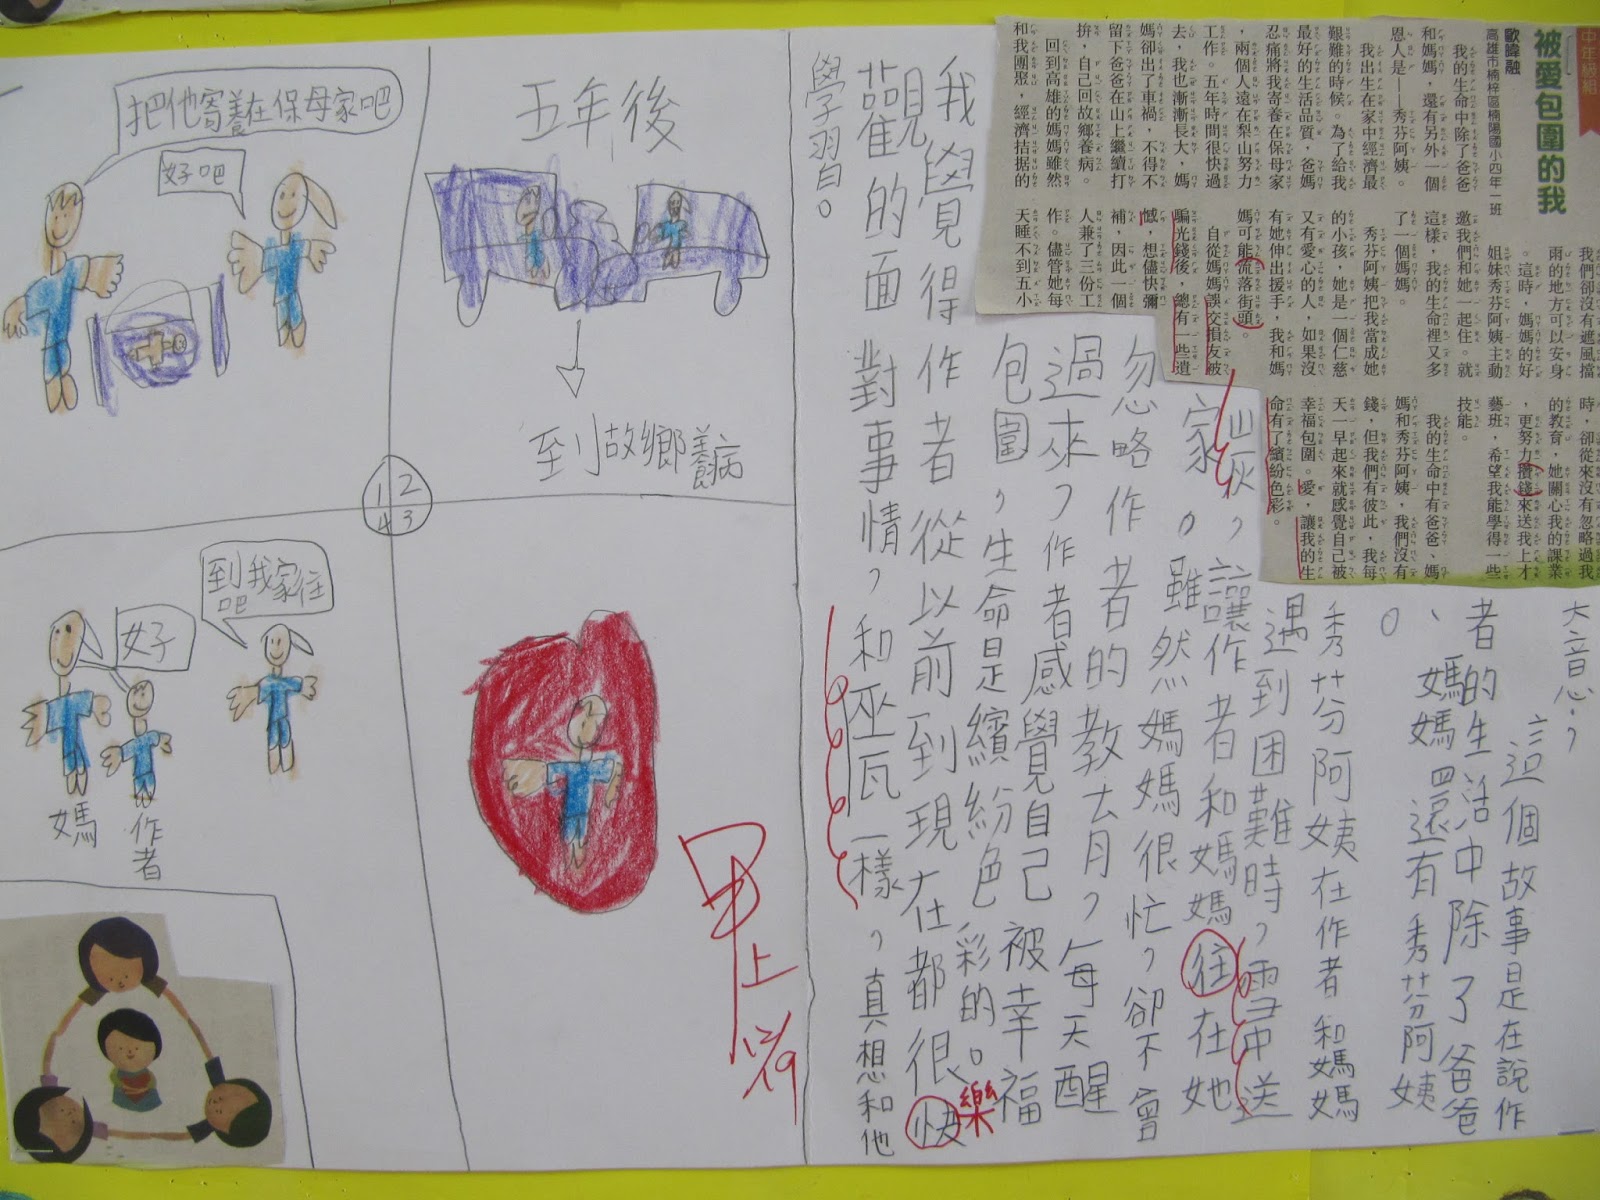 中年級組
被愛包圍的我
歐暐融
高雄市楠梓區楠陽國小四年一班
我的生命中除了爸爸
和媽媽，還有另外一個
恩人是——秀芬阿姨。
我出生在家中經濟最
艱難的時候。為了給我
最好的生活品質，爸媽
忍痛將我寄養在保母家
，兩個人遠在梨山努力
工作。五年時間很快過
去，我也漸漸長大，媽
媽卻出了車禍，不得不
留下爸爸在山上繼續打
拚，自己回故鄉養病。
回到高雄的媽媽雖然
和我團聚，經濟拮据的
我們卻沒有遮風擋
雨的地方可以安身
。這時，媽媽的好
姐妹秀芬阿姨主動
邀我們和她一起住。就
這樣，我的生命裡又多
了一個媽媽。
秀芬阿姨把我當成她
的小孩，她是一個仁慈
又有愛心的人，如果沒
有她伸出援手，我和媽
媽可能流落街頭。
自從媽媽誤交損友被
騙光錢後，總有一些遺
憾，想儘快彌
補，因此一個
人兼了三份工
作。儘管她每
天睡不到五小
時，卻從來沒有忽略過我
的教育，她關心我的課業
，更努力攢錢來送我上才
藝班，希望我能學得一些
技能。
我的生命中有爸爸、媽
媽和秀芬阿姨，我們沒有
錢，但我們有彼此，我每
天一早起來就感覺自己被
幸福包圍。愛，讓我的生
命有了繽紛色彩。
大意：
這個故事是在說作
者的生活中除了爸爸
、媽媽還有秀芬阿姨
。
秀芬阿姨在作者和媽媽
遇到困難時，雪中送
炭，讓作者和媽媽往在她
家。雖然媽媽很忙，卻不會
忽略作者的教育，每天醒
過來，作者感覺自己被幸福
包圍，生命是繽紛色彩的。
我覺得作者從以前到現在都很快樂
觀的面對事情，和巫瓦一樣，真想和他
學習自。
把他寄養在保母家吧
好吧
五年後
到故鄉養病
1 2
4 3
到我家住
吧
好
媽
作者
甲上